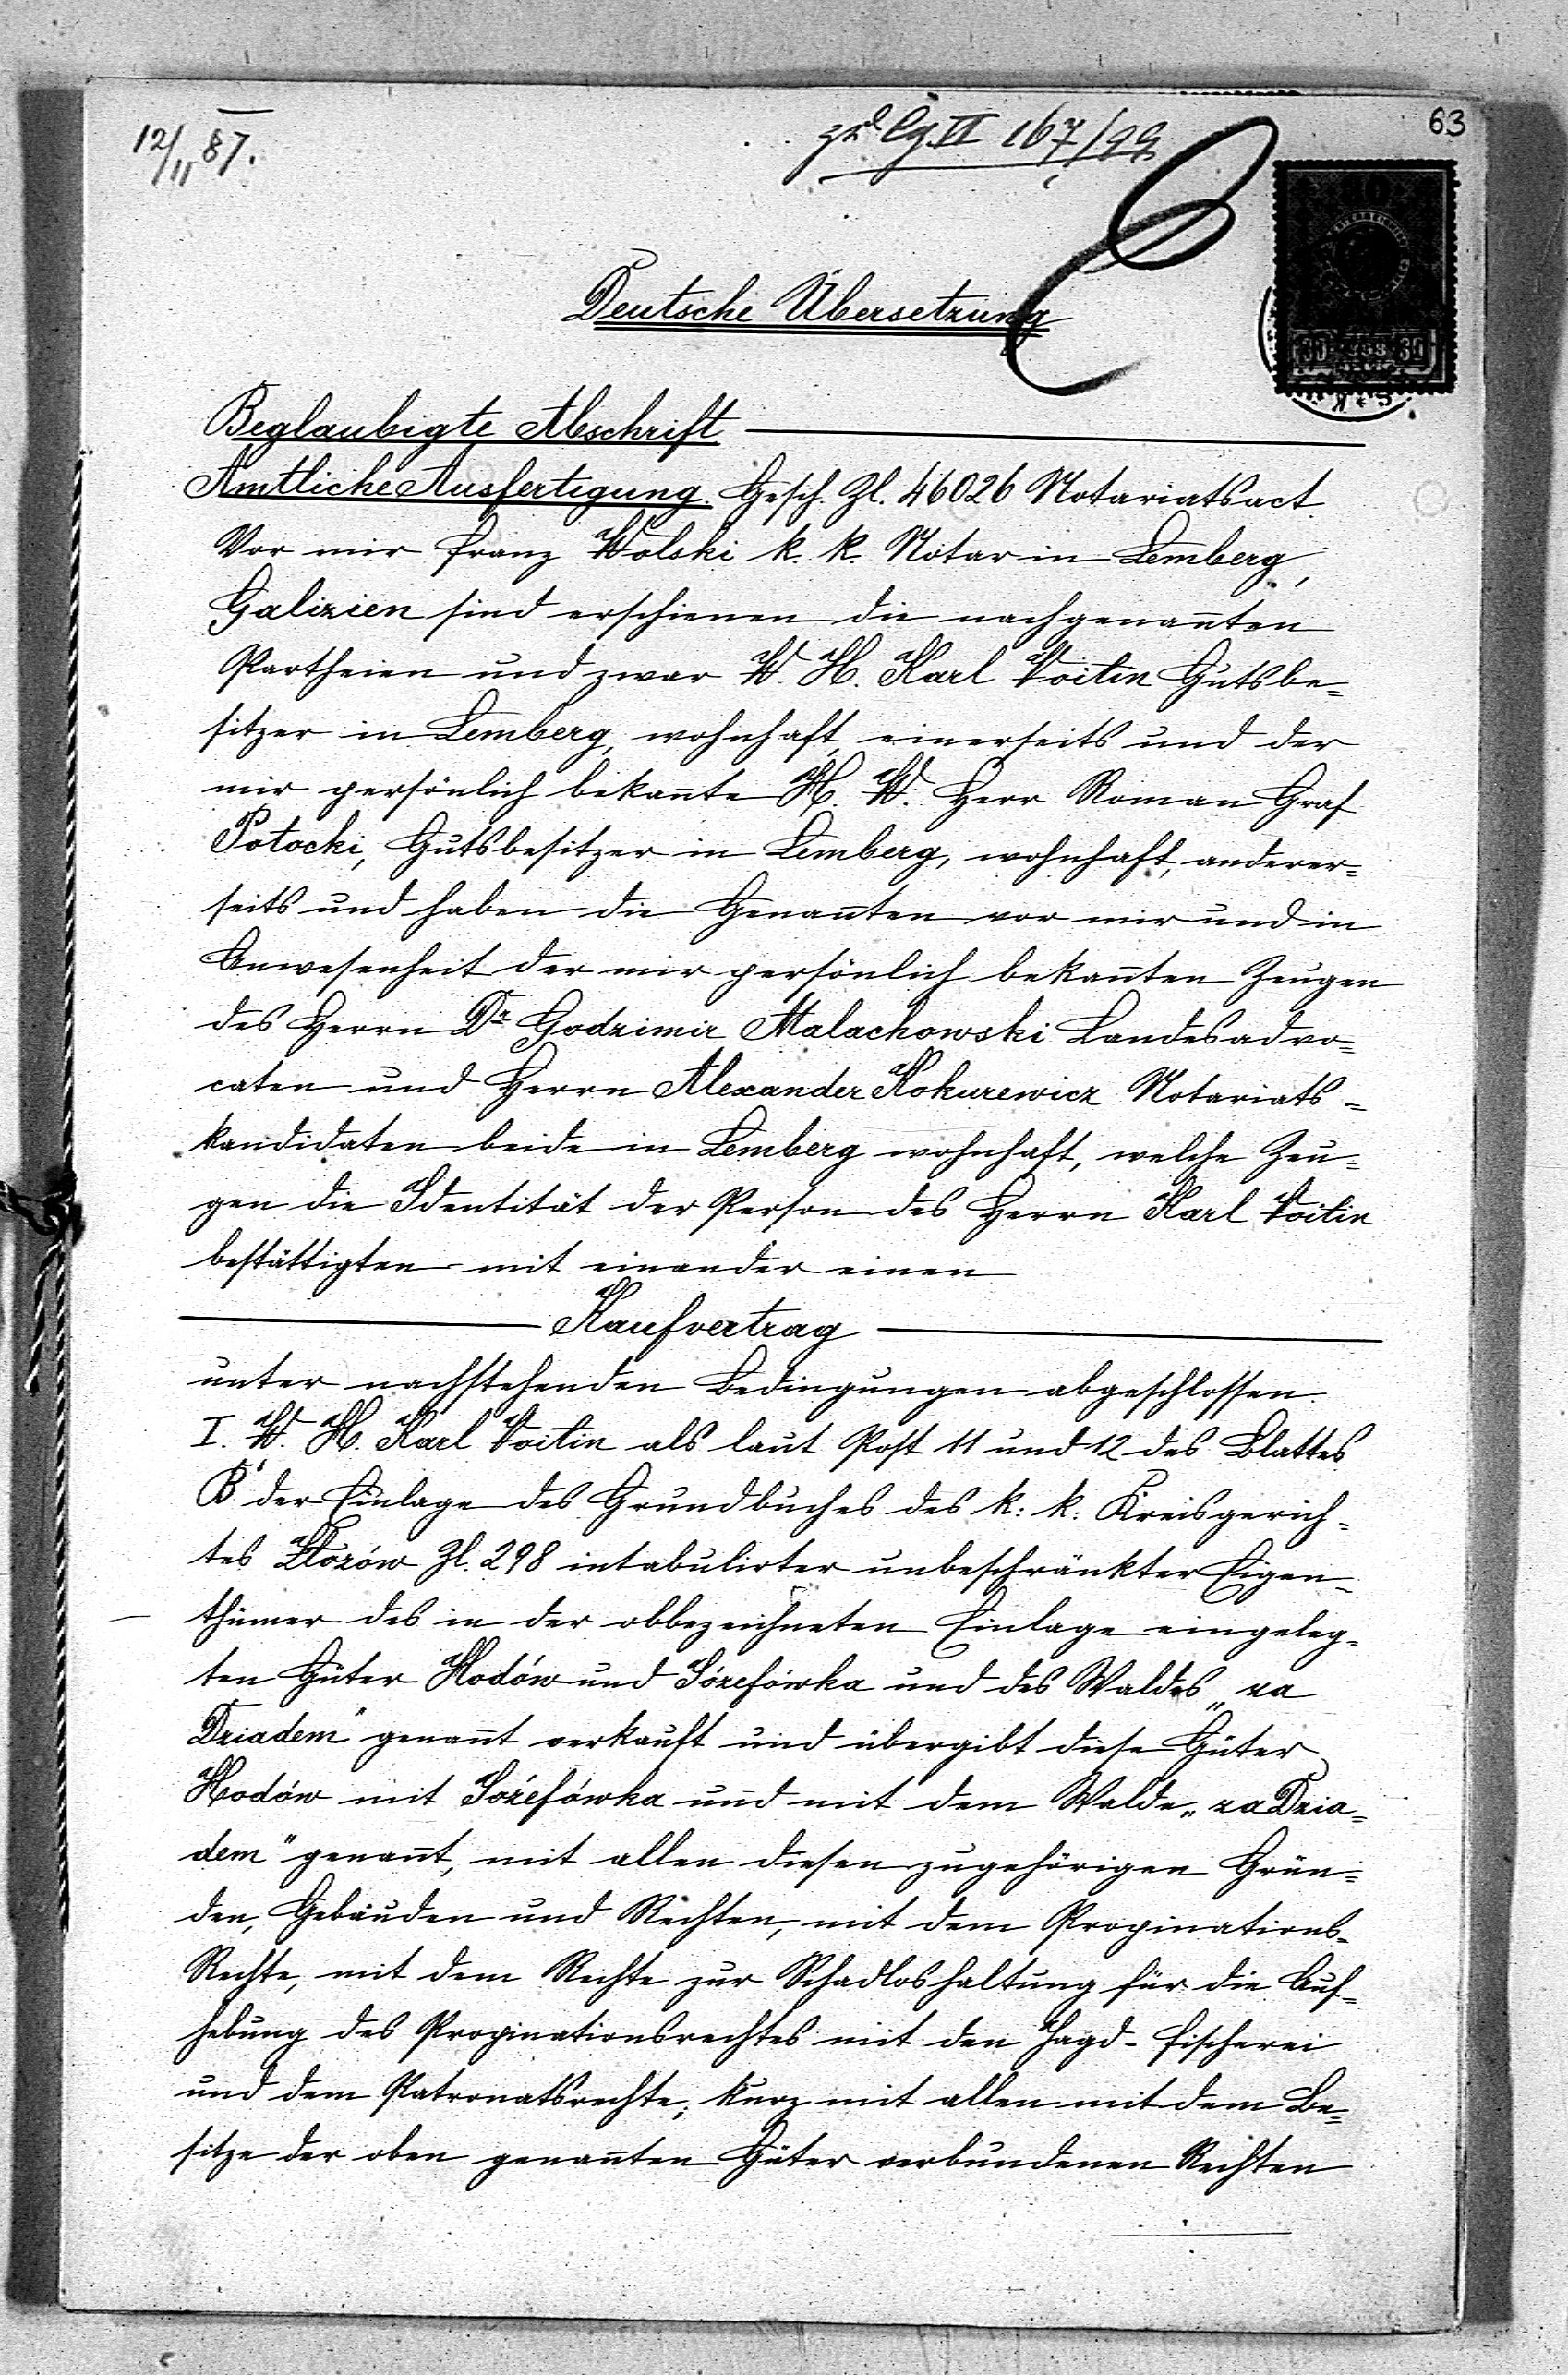 12/11 87.
zu Cg II 167/99
63
Deutsche Übersetzung
Beglaubigte Abschrift
Amtliche Ausfertigung. Gesch. Zl. 46026 Notariatsact
Vor mir Franz Wolski k. k. Notar in Lemberg,
Galizien sind erschienen die nachgenan̄ten
Partheien und zwar W. H. Karl Voitin Gutsbe=
sitzer in Lemberg, wohnhaft, einerseits und der
mir persönlich bekan̄te H. W. Herr Roman Graf
Potocki, Gutsbesitzer in Lemberg, wohnhaft, anderer=
seits und haben die Genan̄ten vor mir und in
Anwesenheit der mir persönlich bekan̄ten Zeugen
des Herrn Dr Godzimir Malachowski Landesadvo=
caten und Herrn Alexander Kokurewicz Notariats=
kandidaten beide in Lemberg wohnhaft, welche Zeu=
gen die Identität der Person des Herrn Karl Voitin
bestättigten mit einander einen
Kaufvertrag
unter nachstehenden Bedingungen abgeschlossen.
I. W. H. Karl Voitin als laut Post 11 und 12 des Blattes
B der Einlage des Grundbuches des k: k: Kreisgerich=
tes Złozów Zl. 298 intabulirter unbeschränkter Eigen=
thümer des in der obbezeichneten Einlage eingeleg=
ten Güter Hodów und Józefówka und des Waldes „za
Dziadem" genan̄t verkauft und übergibt diese Güter
Hodów mit Józefówka und mit dem Walde „za Dzia=
dem" genan̄t, mit allen diesen zugehörigen Grün=
den, Gebäuden und Rechten, mit dem Propinations=
Rechte, mit dem Rechte zur Schadloshaltung für die Auf=
hebung des Propinationsrechtes mit den Jagd- Fischerei
und dem Patronatsrechte; kurz mit allen mit dem Be=
sitze der oben genan̄ten Güter verbundenen Rechten